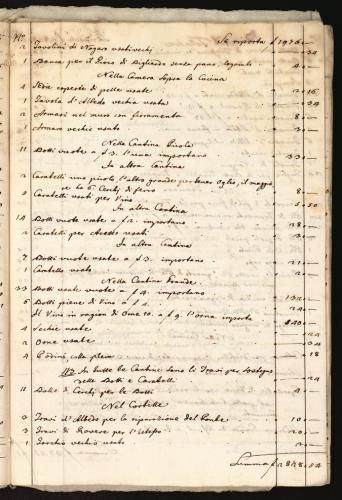 No. Si riporta f 1976 —
2 Tavolini di Nogaro usati vecchi — 34
1 Banca per il Gioco di Bigliardo senza pano, 4 —
Nella Camera Sopra la Cucina
4 Sedie coperte di pelle usate 2 16
1 Tavola d'Albedo vechia usata — 34
2 Armari nel muro con ferramenta 8 —
1 Armaro vechio usato 3 —
Nella Cantina Picola
11 Botti vuote a f 3. l'una importano 33 —
In altra Cantina
2 Caratelli uno picolo l'altro grande per tener Oglio, il maggiore
ha 6 Cerchj di ferro 8 —
Caratelli usati per Vino 5 50
In altra Cantina
14 Botti vuote usate a f 2. importano 28 —
2 Caratelli per Aceto usati 3 —
In altra Cantina
7 Botti vuote usate a f 3. importano 21 —
1 Caratello usato 2 —
Nella Cantina Grande
33 Botti usate vuote a f 4. importano 132 —
6 Botti piene di Vino a f 4. 24 —
Il Vino in ragion di Orne 10. a f 9. l'orna importa 540 —
4 Sechie usate — 24
2 Orne usate 2 —
4 — 18
NB In tutte le Cantine sono li Travi per sostegno
delle Botti e Caratelli — 24
11 Cerchj per le Botti 4 —
Nel Cortille
3 Travi d'Albedo per la riparazione del Ponte 10 —
3 Travi di Rovere per l'istesso 20 —
1 Torchio vechio usato 2 —
Summa f 2848 54